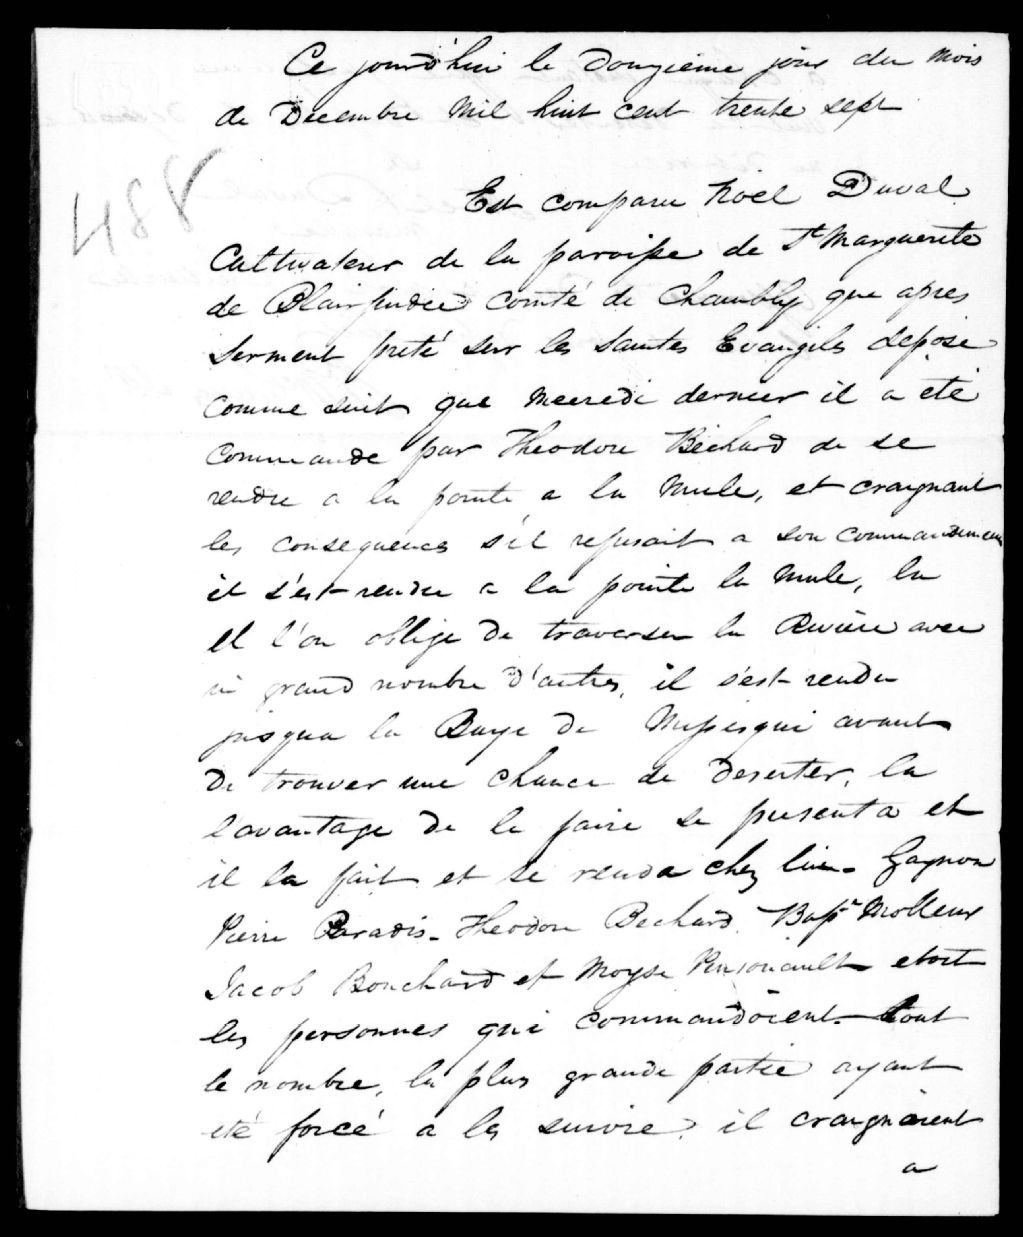 Ce jourd'hui le Douzieme jour du Mois
de Decembre Mil huit cent trente sept
488
Est comparu Noel Duval
Cultivateur de la paroisse de Ste Marguerite
de Blairfindie comté de Chambly que apres
Serment preté sur les saintes Evangiles depose
Comme suit que Mecredi dernier il a été
Commande par Theodore Bechard de se
rendre a la pointe a la Mule, et craignant
les consequences s'il refusait a son commandement
il s'est rendu a la pointe la Mule, la
il l'on oblige de traverser la Riviere avec
un grand nombre d'autres, il s'est rendu
jusqua la Baye de Missisqui avant
De trouver une chance de Deserter, la
l'avantage de le faire se presenta et
il la fait et se renda chez lui. Gagnon
Pierre Paradis. Theodore Bechard. Bapte Molleur
Jacob Bouchard et Moyse Pinsonault etoit
les personnes qui commandoient tout
le nombre, la plus grande partie ayant
été forcé a les suivre, il craignoient
a